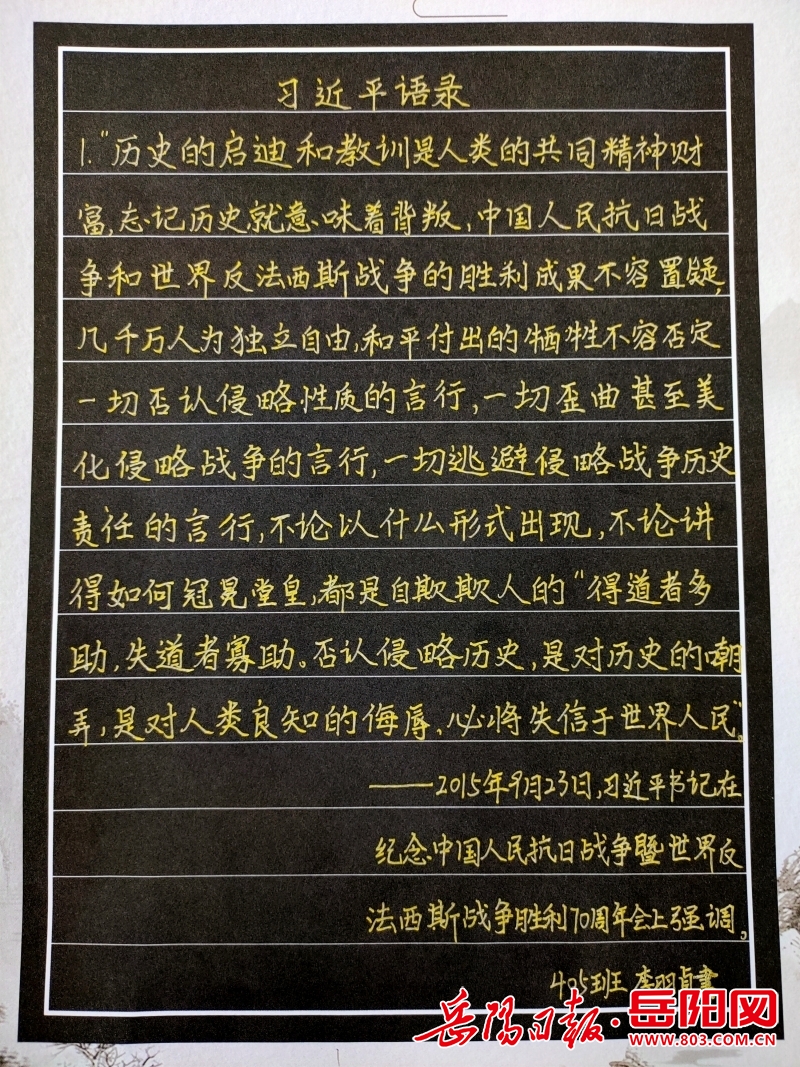 习近平语录
1.“历史的启迪和教训是人类的共同精神财
富,忘记历史就意味着背叛,中国人民抗日战
争和世界反法西斯战争的胜利成果不容置疑,
几千万人为独立自由,和平付出的牺牲不容否定
一切否认侵略性质的言行,一切歪曲甚至美
化侵略战争的言行,一切逃避侵略战争历史
责任的言行,不论以什么形式出现,不论讲
得如何冠晃堂皇,都是自欺欺人的“得道者多
助,失道者寡助。否认侵略历史,是对历史的嘲
弄,是对人类良知的侮辱,必将失信于世界人民”。
——2015年9月23日,习近平书记在
纪念中国人民抗日战争暨世界反
法西斯战争胜利70周年会上强调。
405班 李羽贞書
岳阳日报·岳阳网
www.803.com.cn